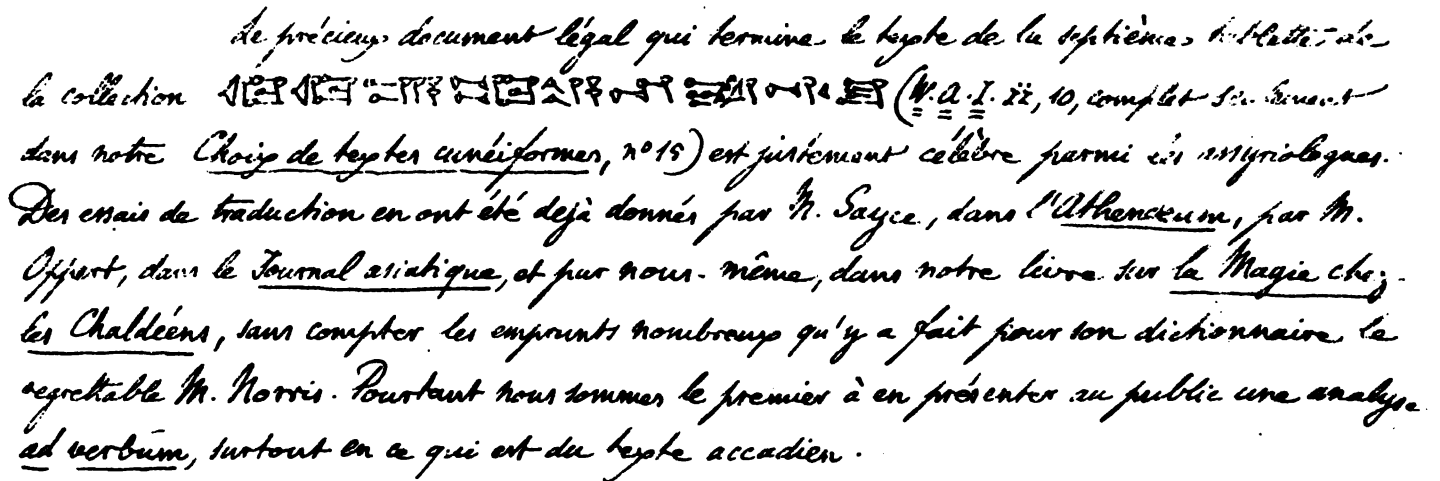 Le précieux document légal qui termine le texte de la septième tablette de
la collection (W.A.I. II, 10, complet seulement
dans notre Choix de textes cunéiformes, nº 15) est justement célèbre parmi les assyriologues.
Des essais de traduction en ont été dejà donnés par M. Sayce, dans l'Athenæum, par M.
Oppert, dans le Journal asiatique, et par nous-même, dans notre livre sur la Magie chez
les Chaldéens, sans compter les emprunts nombreux qu'y a fait pour son dictionnaire le
regrettable M. Norris. Pourtant nous sommes le premier à en présenter au public une analyse
ad verbum, surtout en ce qui est du texte accadien.